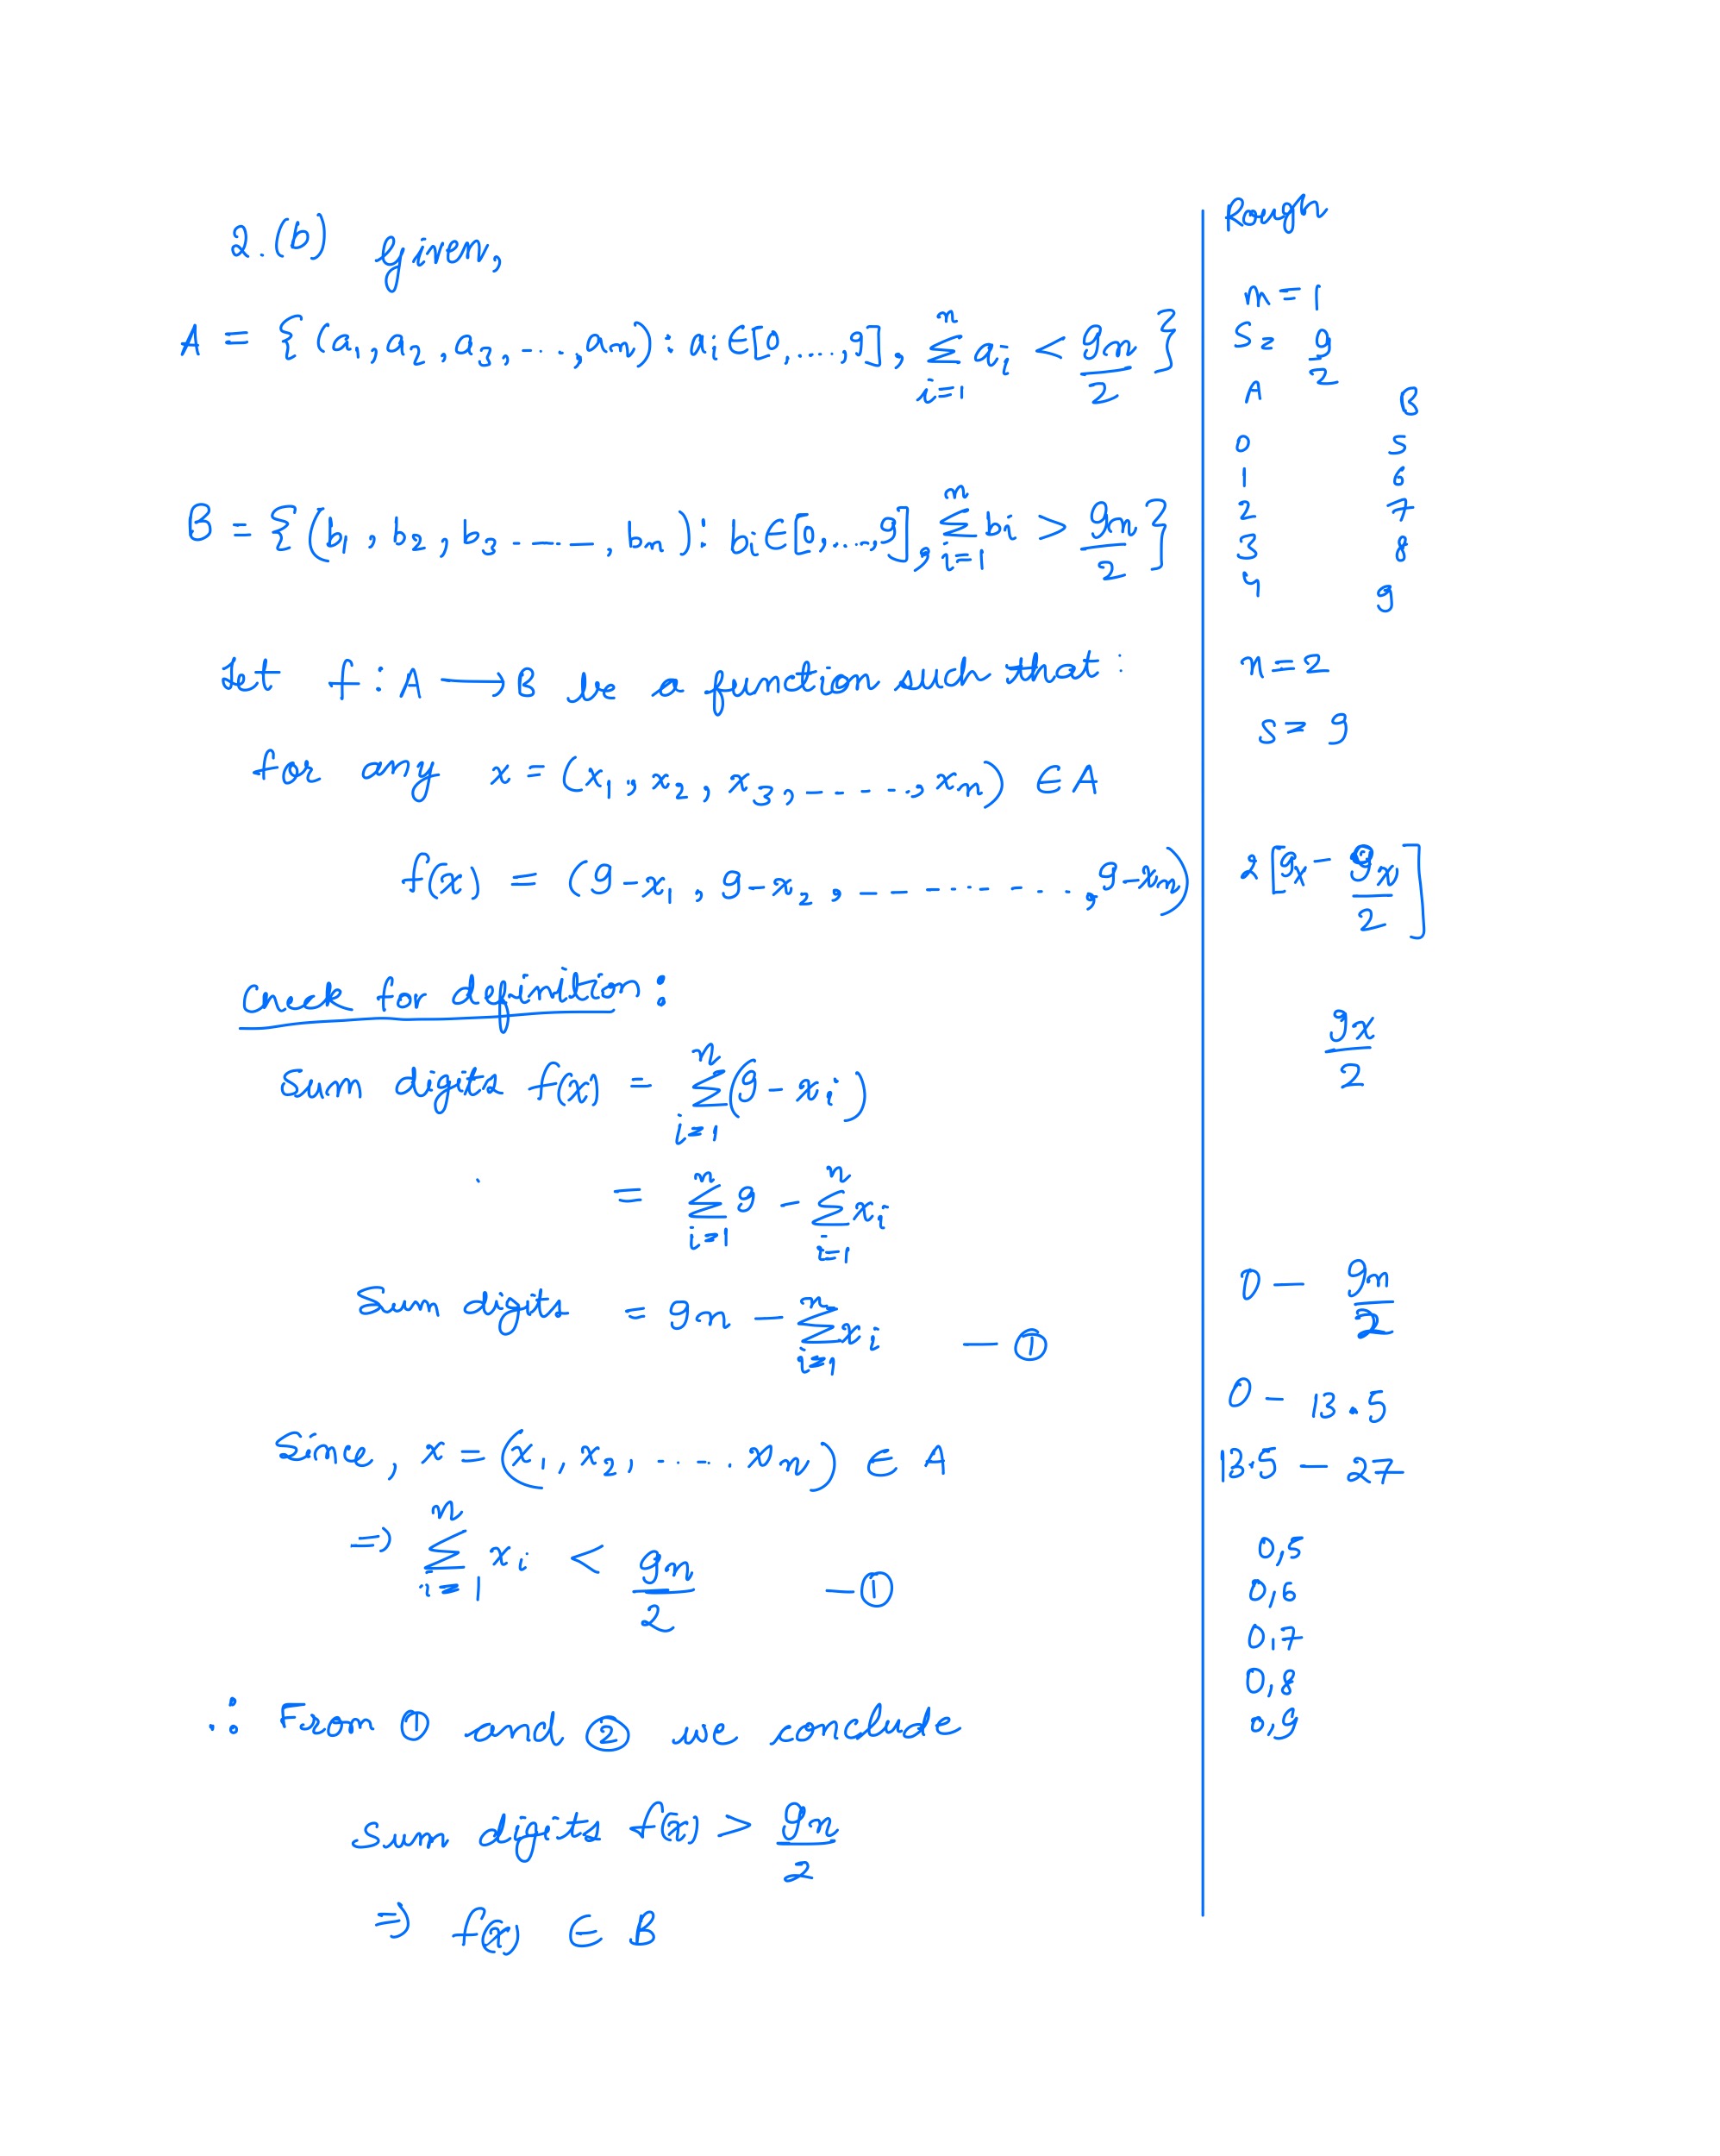 2.(b) Given,
A = {(a₁, a₂, a₃, -...., aₙ) : aᵢ ∈ [0, ...., 9], ∑ᵢ₌₁ⁿ aᵢ < 9n/2}
B = {(b₁, b₂, b₃ -----, bₙ) : bᵢ ∈ [0, ..., 9], ∑ᵢ₌₁ⁿ bᵢ > 9n/2}
Let f : A ⟶ B be a function such that :
for any x = (x₁, x₂, x₃, ------, xₙ) ∈ A
f(x) = (9-x₁, 9-x₂, ----------, 9-xₙ)
Check for definition :
Sum digits f(x) = ∑ᵢ₌₁ⁿ (9 - xᵢ)
= ∑ᵢ₌₁ⁿ 9 - ∑ᵢ₌₁ⁿ xᵢ
Sum digits = 9n - ∑ᵢ₌₁ⁿ xᵢ — ①
Since, x = (x₁, x₂, ..... xₙ) ∈ A
⇒ ∑ᵢ₌₁ⁿ xᵢ < 9n/2 — ①
∴ From ① and ② we conclude
Sum digits f(x) > 9n/2
⇒ f(x) ∈ B
Rough
n = 1
S = 9/2
A B
0 5
1 6
2 7
3 8
4 9
n = 2
s = 9
2[9x - 9x/2]
9x/2
0 - 9n/2
0 - 13.5
13.5 - 27
0,5
0,6
0,7
0,8
0,9